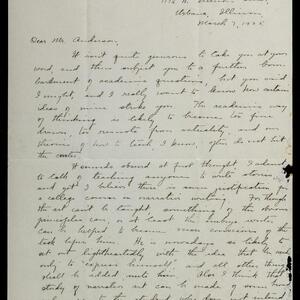 Urbana, Illinois
March 7, 192
Dear Mr. Anderson,
It isn't quite generous to take you at your
word, and then subject you to a further bom-
bardment of academic questions, but you said
I might, and I really want to know how certain
ideas of mine strike you. The academic way
of thinking is likely to become too fine
drawn, too remote from actuality, and our
theories of how to teach, I know, often do not hit
the center.
It sounds absurd at first thought, I admit
to talk of teaching anyone to write stories
and yet I believe there is some justification for
a college course in narrative writing. For though
the art can't be taught, something of the obvious
principles can, or at least the embryo writer
can be helped to become more conscious of the
task before him. He is nowadays so likely to
set out lightheartedly with the idea that he need
only to "express himself" and all other things
shall be added unto him. Also I think that
study of narration can be made of some
to the student who